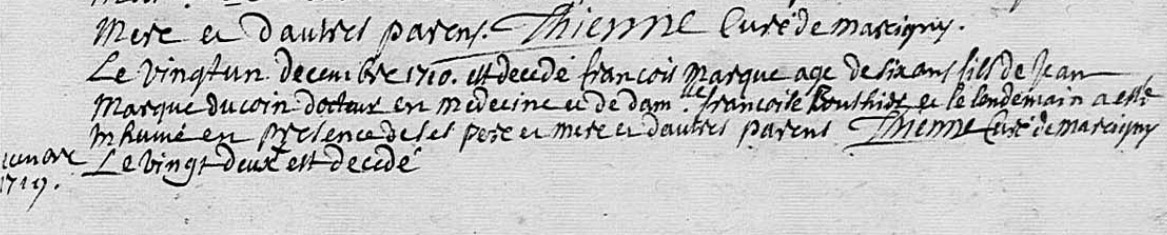 Mere et dautres parens. Thienne Curé de Marcigny.
Le vingtun decembre 1710. est decedé francois Marque age de six ans fils de Jean
Marque ducoin docteur en medecine et de dam.lle francoise Bouthier et le lendemain a esté
inhumé en presence de ses pere et mere et dautres parens Thienne Curé de Marcigny
Le vingt deux est decedé
1719.